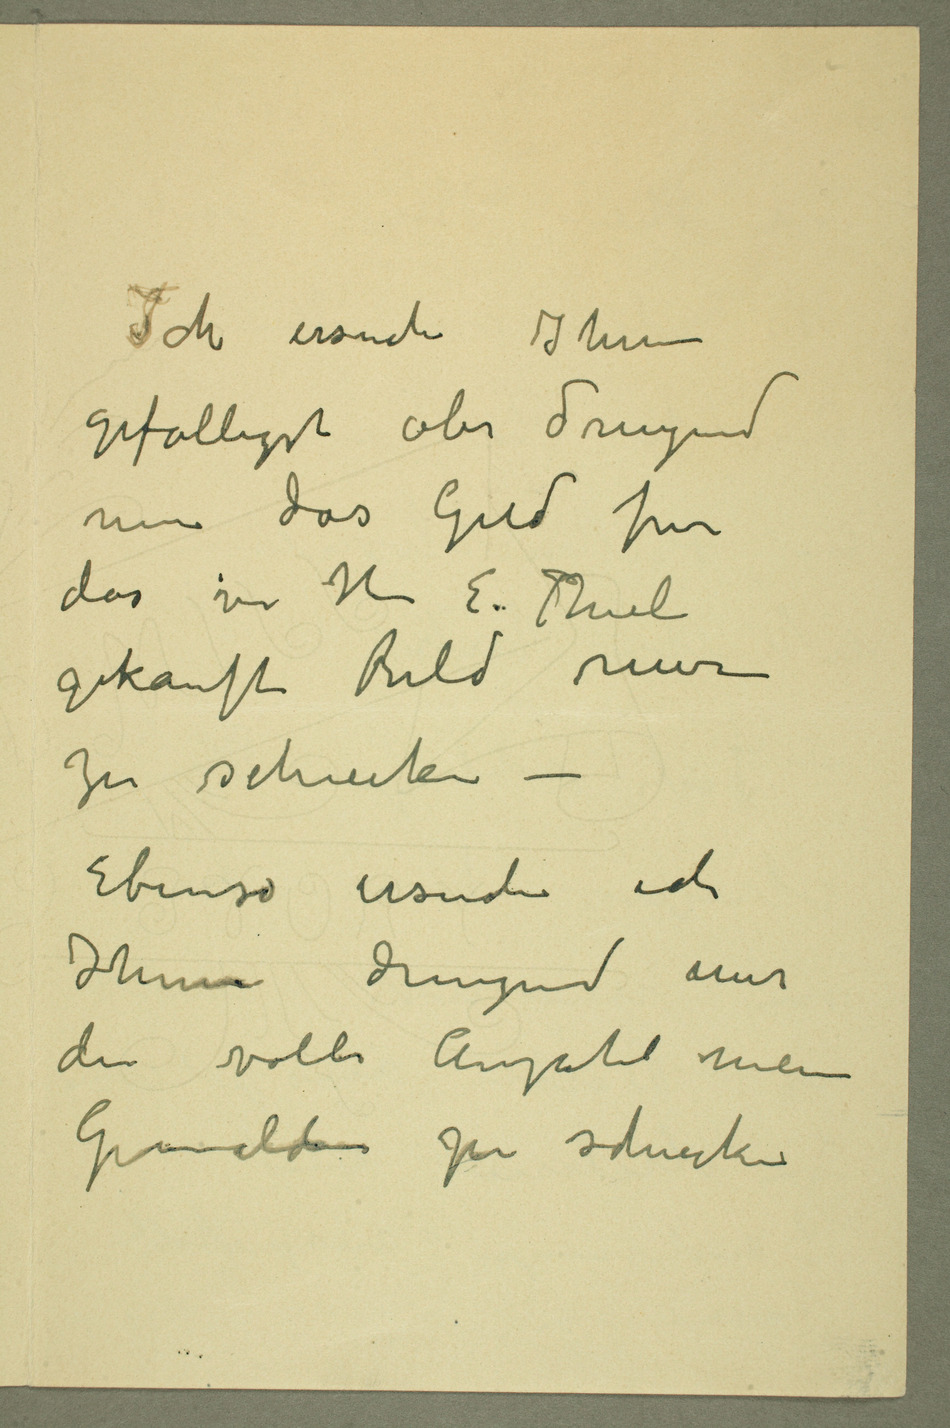 Ich ersuche Ihnen
gefälligst aber dringend
mir das Geld für
das von Hr E. Thiel
gekaufte Bild mir
zu schicken —
Ebenso ersuche ich
Ihnen dringend mir
die volle Anzahl meine
Gemälden zu schicken